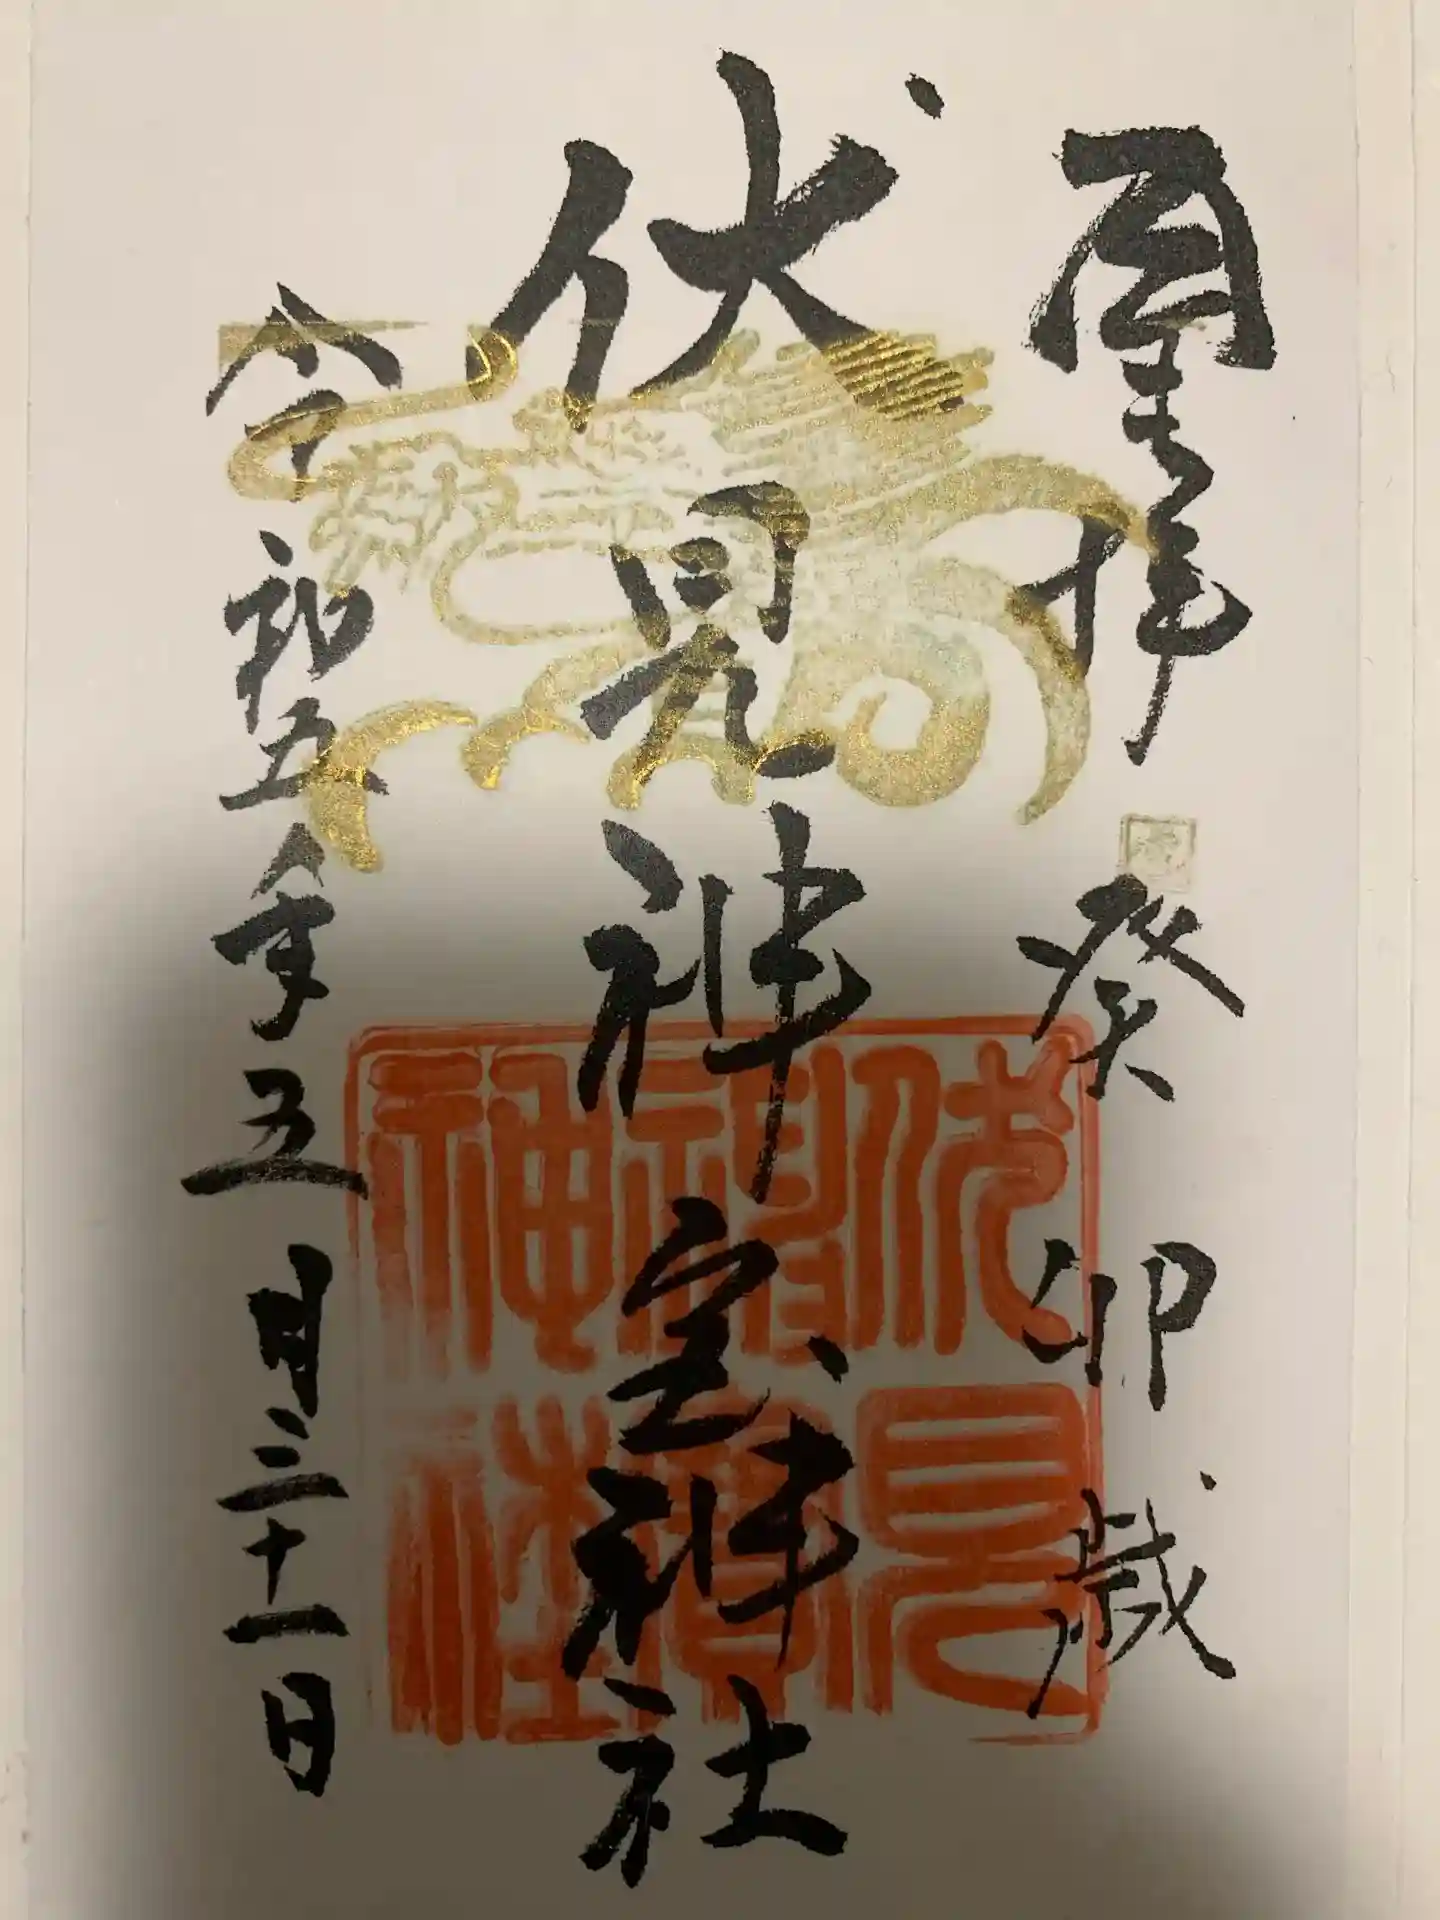 拝 癸卯歳
伏見神宝神社
令和五年五月三十一日
伏見
神寶
神社